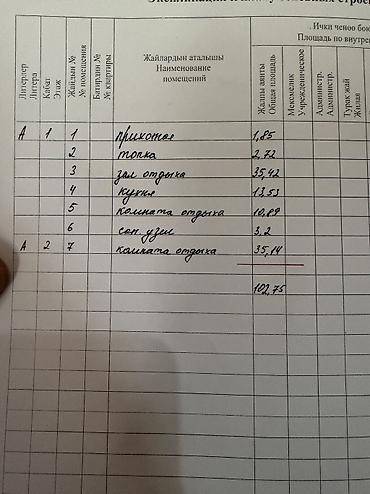 Ички ченөө
Площадь по внутре
Литерлер
Литера
Кабат
Этаж
Жайдын №
№ помещения
Батирдин №
№ квартиры
Жайлардын аталышы
Наименование
помещений
Жалпы аянты
Общая площадь
Мекемелик
Учрежденическое
Администр.
Администр.
Турак жай
Жилая
А 1 1 прихожая 1,85
2 топка 2,72
3 зал отдыха 35,42
4 кухня 13,53
5 комната отдыха 10,89
6 сан. узел 3,2
А 2 7 комната отдыха 35,14
102,75